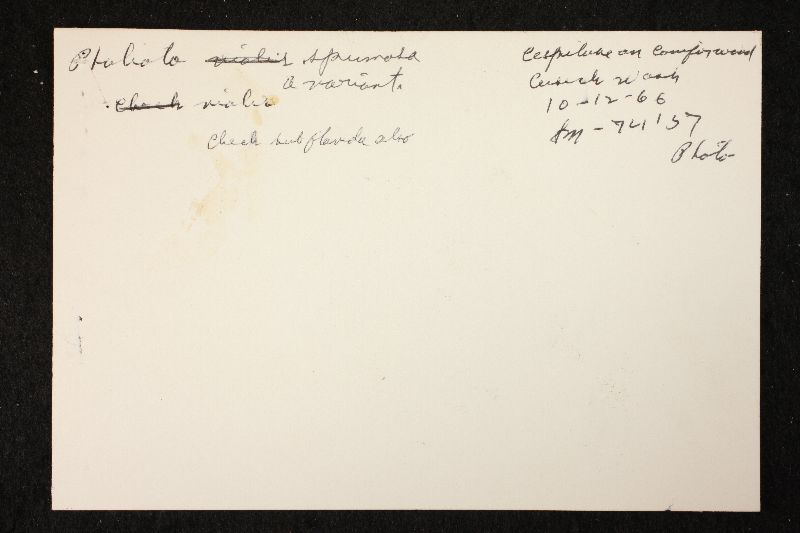 Pholiota vialis spumosa
a variant.
check vialis
check subflavida also
Cespitose on conifer wood
Wash
10-12-66
Sm-74157
Photo